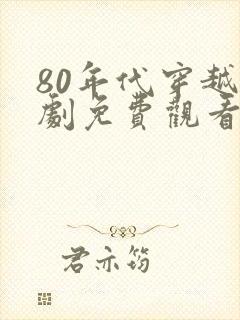 80年代穿越
劇免費觀看
君亦筠